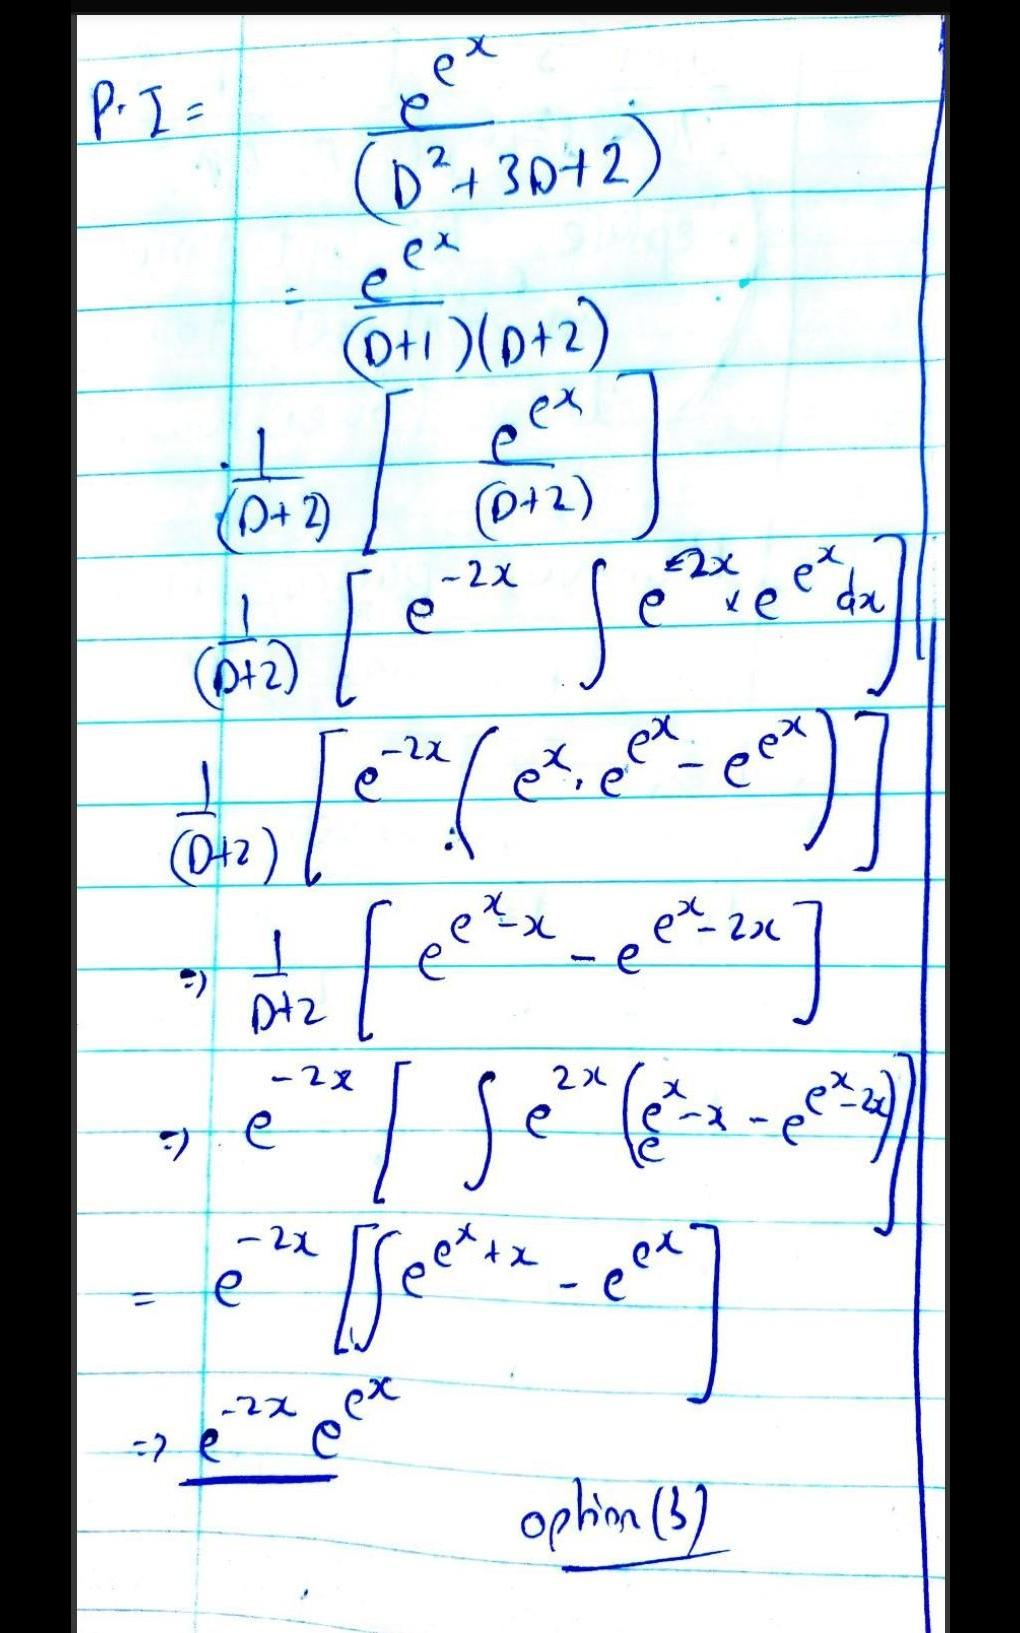 P.I = e^{e^x} / (D² + 3D + 2)
= e^{e^x} / (D+1)(D+2)
1/(D+2) [ e^{e^x} / (D+2) ]
1/(D+2) [ e^{-2x} ∫ e^{2x} × e^{e^x} dx ]
1/(D+2) [ e^{-2x} ( e^x . e^{e^x} - e^{e^x} ) ]
⇒ 1/D+2 [ e^{e^x - x} - e^{e^x - 2x} ]
⇒ e^{-2x} [ ∫ e^{2x} ( e^{e^x - x} - e^{e^x - 2x} ) ]
= e^{-2x} [ ∫ e^{e^x + x} - e^{e^x} ]
⇒ e^{-2x} e^{e^x}
option (3)